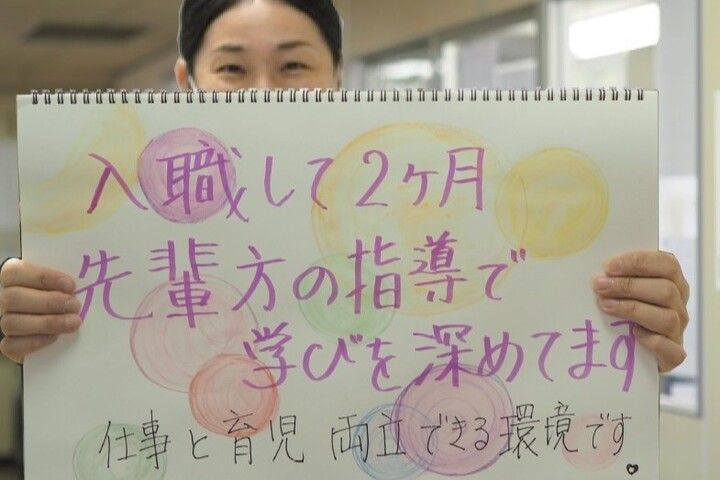 入職して2ヶ月
先輩方の指導で
学びを深めてます
仕事と育児 両立できる環境です